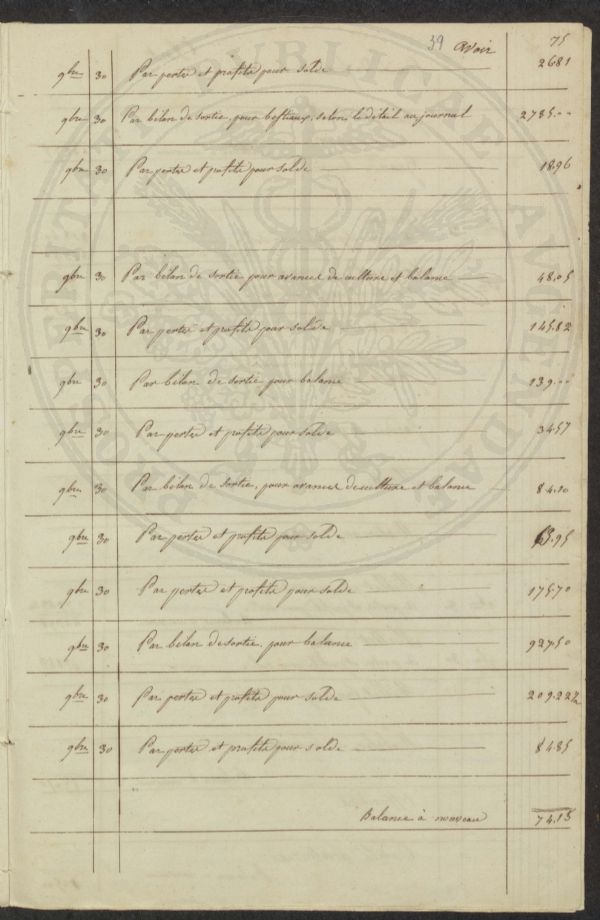 39 Avoir 75
9bre 30 Par pertes et profits pour solde 2681
9bre 30 Par bilan de sortie, pour bestiaux, selon le détail au journal 2735.--
9bre 30 Par pertes et profits pour solde 18.96
9bre 30 Par bilan de sortie pour avances de culture et balance 48.05
9bre 30 Par pertes et profits pour solde 145.82
9bre 30 Par bilan de sortie pour balance 139.--
9bre 30 Par pertes et profits pour solde 3457
9bre 30 Par bilan de sortie, pour avances de culture et balance 84.20
9bre 30 Par pertes et profits pour solde 63.95
9bre 30 Par pertes et profits pour solde 175.70
9bre 30 Par bilan de sortie, pour balance 927.50
9bre 30 Par pertes et profits pour solde 209.22½
9bre 30 Par pertes et profits pour solde 84.85
Balance à nouveau 74.15